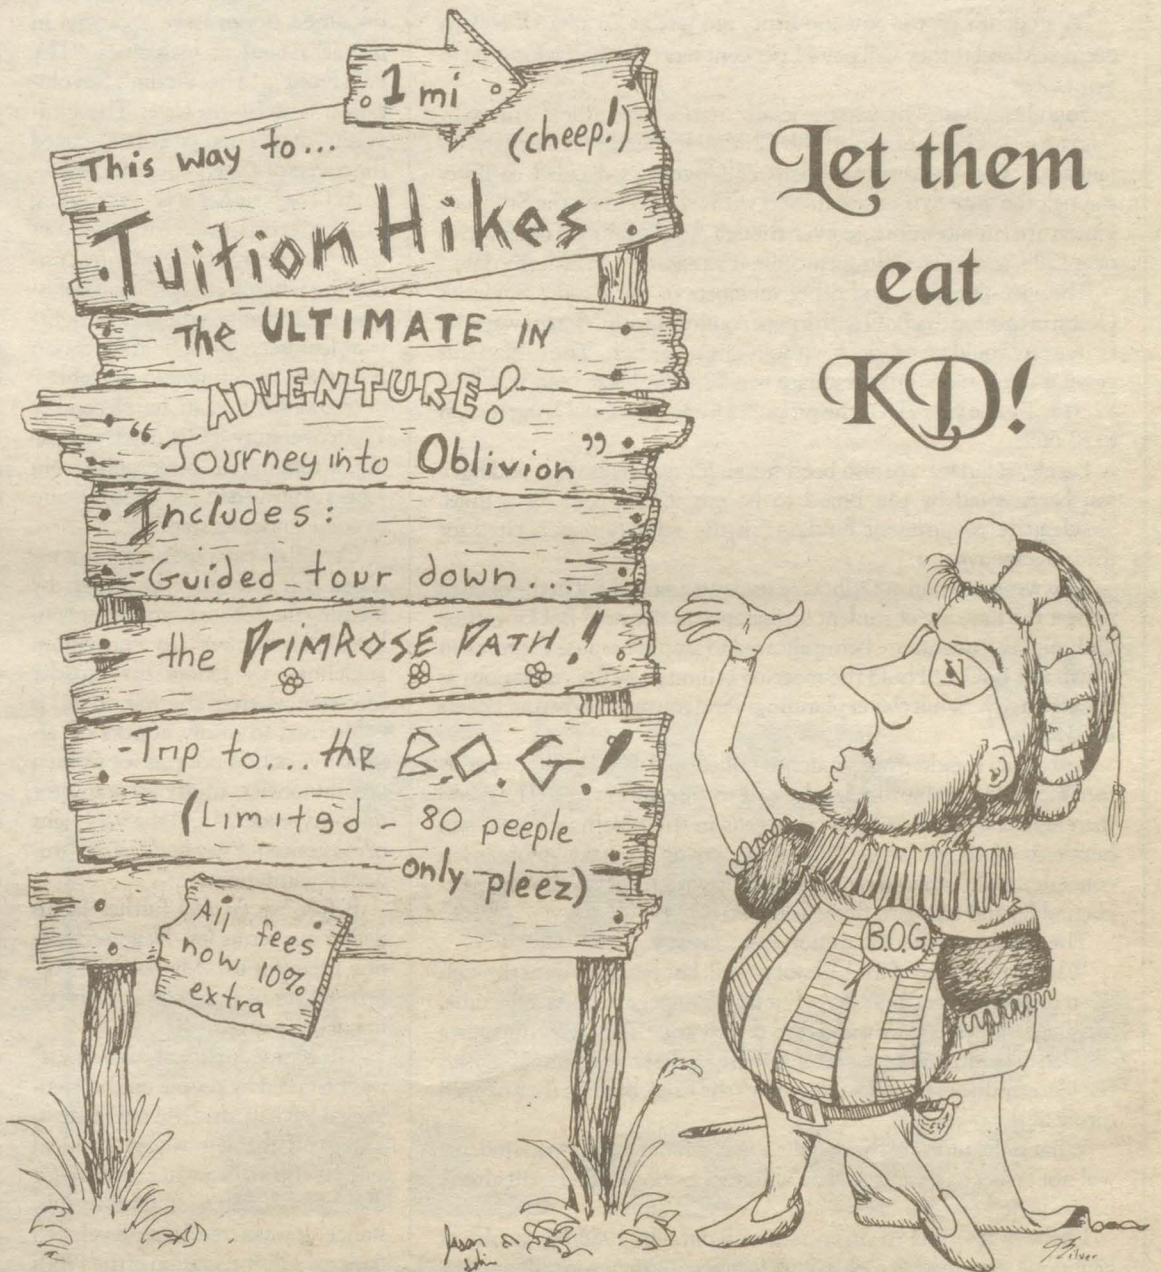 1 mi
This way to...
(cheep!)
Tuition Hikes
The ULTIMATE IN
ADVENTURE!
"Journey into Oblivion"
Includes:
-Guided tour down...
the PRIMROSE PATH!
-Trip to... the B.O.G.!
(Limited - 80 peeple
only pleez)
All fees
now 10%
extra
Let them
eat
KD!
B.O.G.
Jason
93
Silver